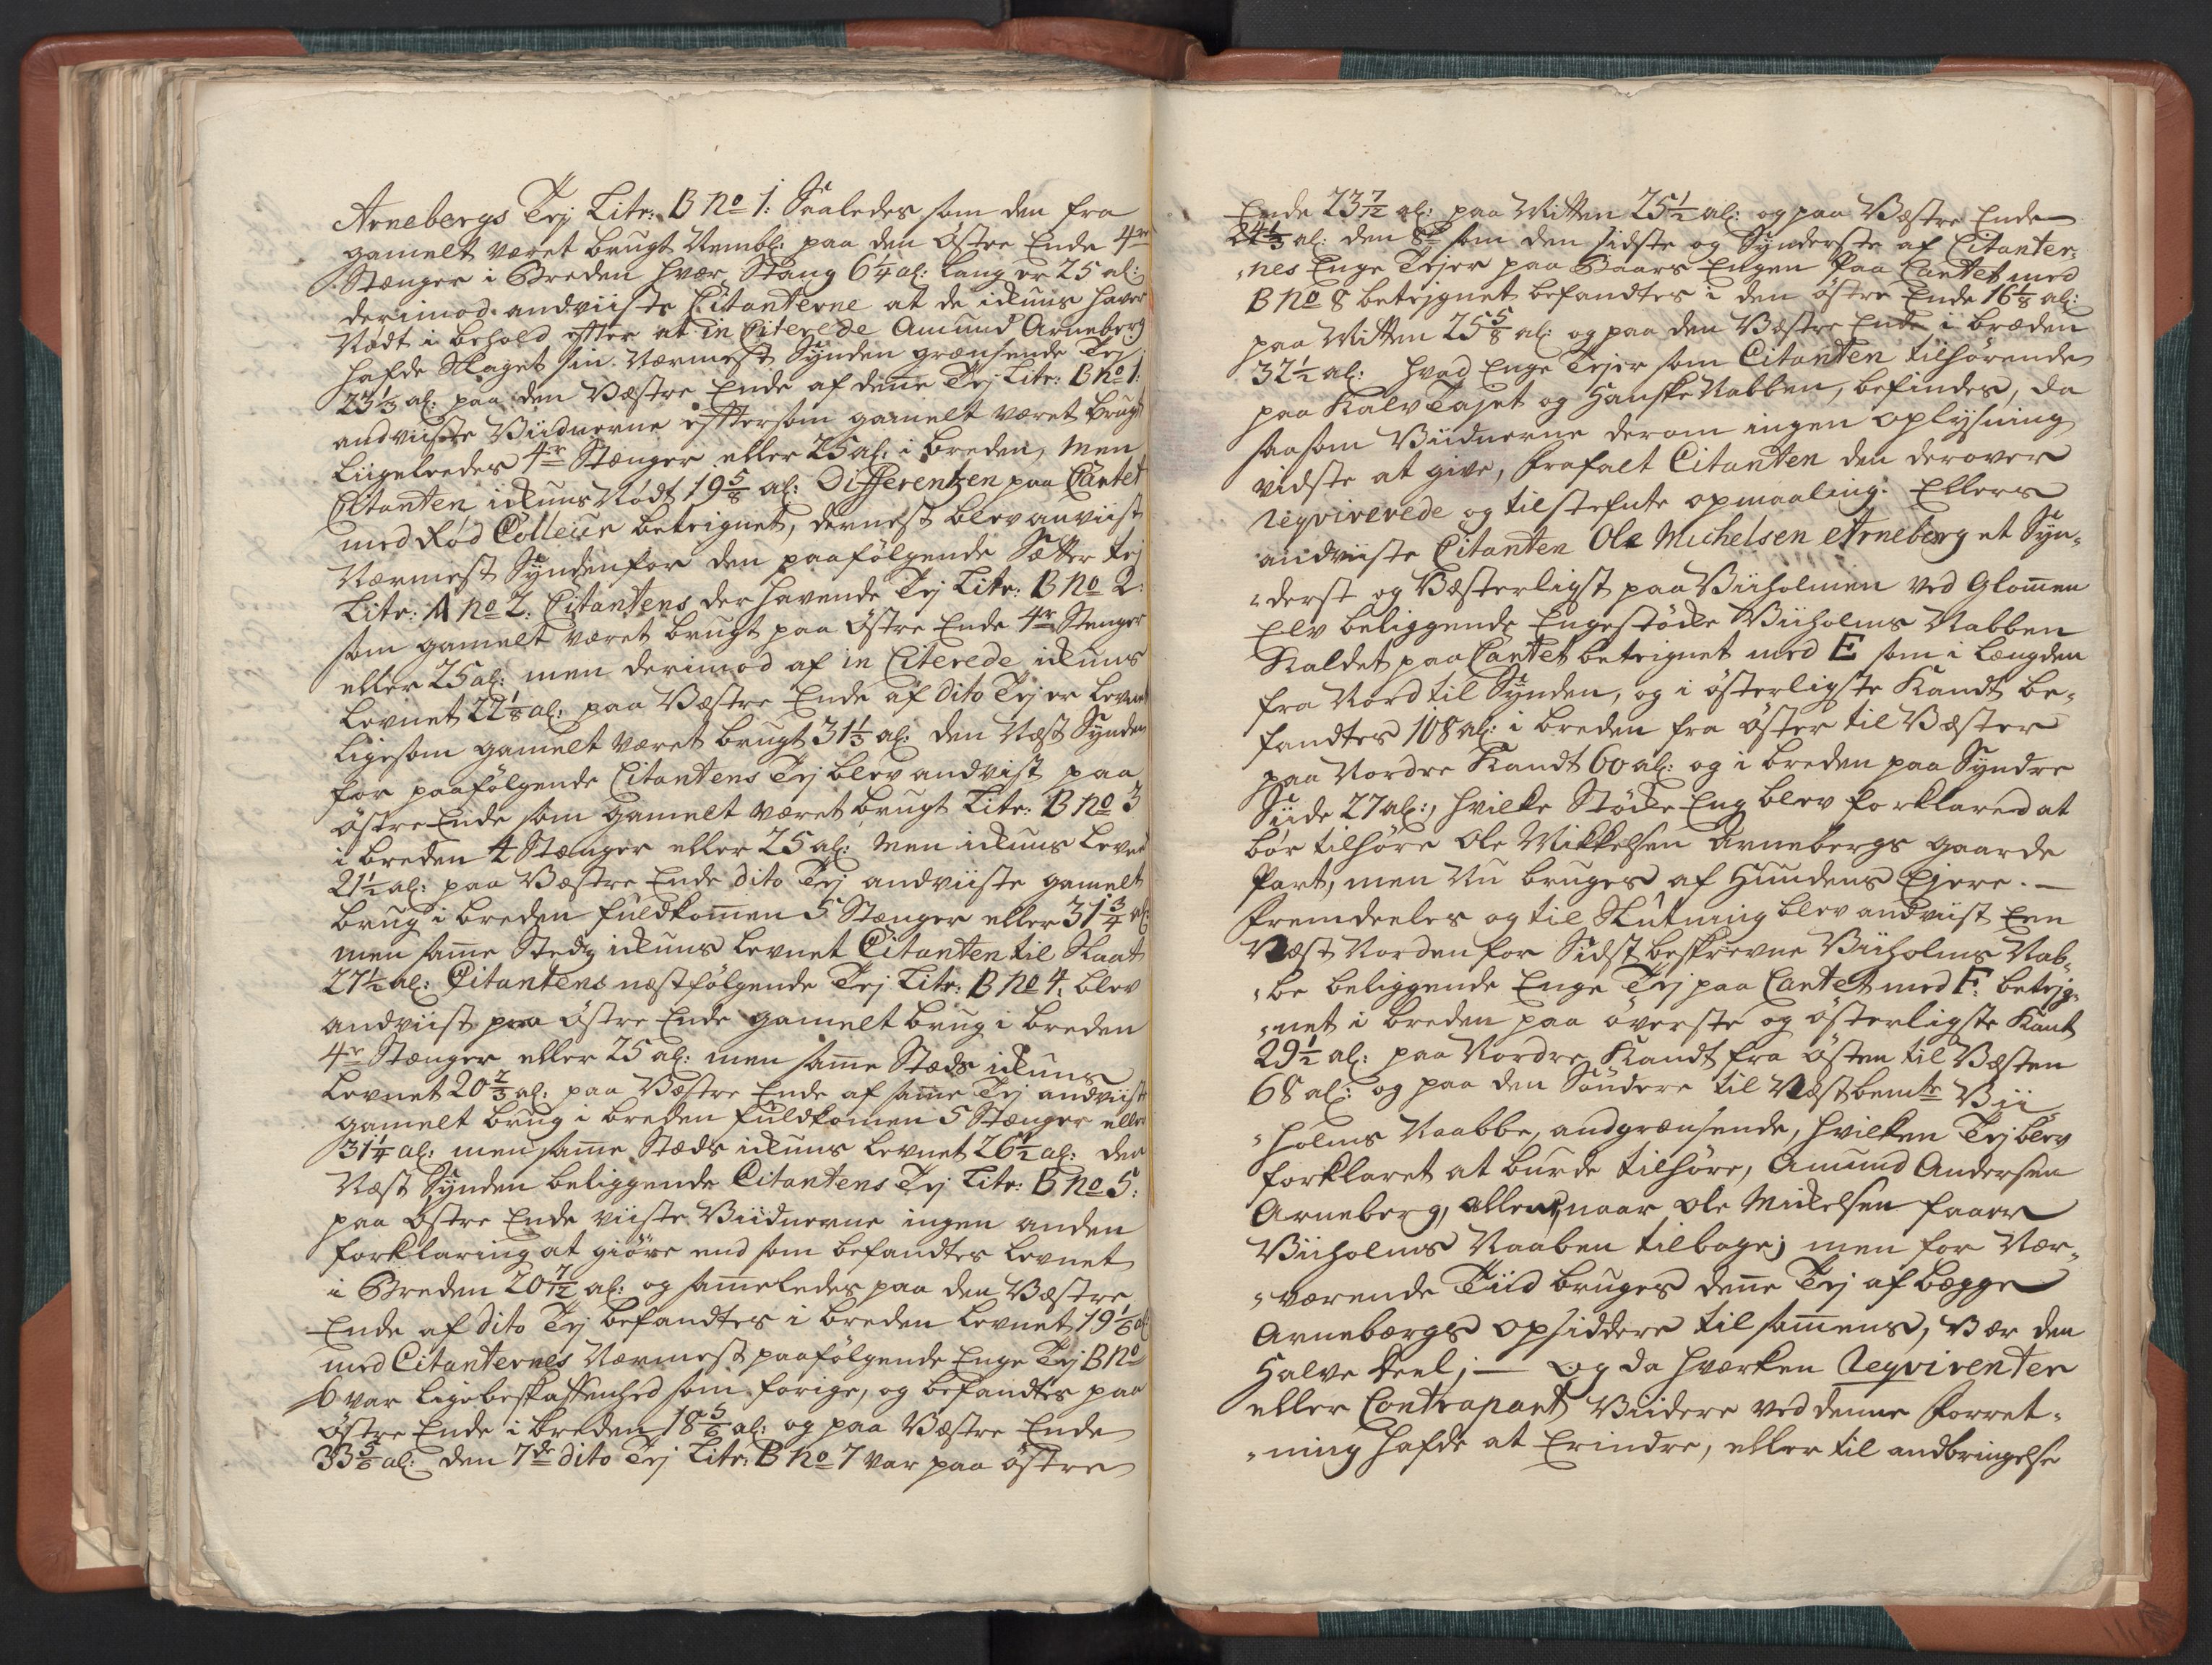 Arnebergs Tej Litr: B No 1: Saaledes som den fra
gamelt været brugt Nembl: paa den Östre Ende 4re
Stænger i Breden hvær Stang 6¼ al: lang er 25 al:
derimod andviiste Citanterne at de ickuns haver
Nødt i behold efter at in Citerede Amund Arneberg
hafde Slaget sin Nærmest Sÿnden grænsende Tej
23⅓ al: paa den Væstre Ende af denne Tej Litr: B No 1:
andviiste Viidnerne eftersom gamelt været brugt
Liigeledes 4re Stænger eller 25 al: i breden, men
Citanten ickuns Nødt 19⅝ al: Differentzen paa Cartet
med Rød Colleur beteignet, dernest blev anviist
Nærmest Sÿndenfor den paafölgende Sætter Tej
Litr: A No 2. Citantens der havende Tej Litr: B No 2:
som gamelt været brugt paa Östre Ende 4re Stenger
eller 25 al: men derimod af in Citerede ickuns
Levnet 22⅛ al: paa Væstre Ende af dito Tej er Levnet
Ligesom gamelt været brugt 31⅓ al: den Næst Sÿnden
for paafölgende Citantens Tej blev andvist paa
östre Ende som gamelt været brugt Litr: B No 3
i breden 4 Stænger eller 25 al: men ickuns Levnet
21½ al: paa Væstre Ende dito Tej andviiste gamelt
brug i breden fuldkommen 5 Stænger eller 31¾ al:
men samme Stedz ickuns Levnet Citanten til Slaat
27½ al: Citantens næstfölgende Tej Litr: B No 4: blev
andviist paa Östre Ende gamelt brug i breden
4re Stænger eller 25 al: men samme Stæds ickuns
Levnet 20⅔ al: paa Væstre Ende af samme Tej andviist
gamelt brug i breden fuldkomen 5 Stænger eller
31¼ al: men samme Stæds ickuns Levnet 26½ al: den
Næst Sÿnden beliggende Citantens Tej Litr: B No 5:
paa Östre Ende viiste Viidnerne ingen anden
forklaring at giöre end som befandtes Levnet
i Breden 20 7/12 al: og sammeledes paa den Væstre
Ende af dito Tej befandtes i breden Levnet 19⅙ al:
med Citanternes Nærmest paafölgende Enge Tej B No
6 var lige beskaffenhed som forige, og befandtes paa
Östre Ende i breden 18⅚ al: og paa Væstre Ende
33⅚ al: den 7de dito Tej Litr: B No 7 var paa östre
Ende 23 7/12 al: paa Mitten 25½ al: og paa Væstre Ende
24⅓ al: den 8de som den sidste og Sÿnderste af Citanter-
nes Enge Tejer paa Baars Engen paa Cartet med
B No 8 betejgnet befandtes i den östre Ende 16⅛ al:
paa Mitten 25⅝ al: og paa den Væstre Ende i bræden
32½ al: hvad Enge Tejer som Citanten tilhörende
paa Kalv Tajet og Hanske Nabben, befindes, da
saasom Viidnerne derom ingen oplÿsning
vidste at give, frafalt Citanten den derover
reqvirerede og tilstefnte opmaaling. Ellers
andviiste Citanten Ole Michelsen Arneberg et Sÿn-
derst og Væsterligst paa Viiholmen ved Glommen
Elv beliggende Engestöcke Viiholms Nabben
Kaldet paa Cartet beteignet med E som i Længden
fra Nord til Sÿnden, og i österligste Kandt be-
fandtes 108 al: i breden fra öster til Væster
paa Nordre Kandt 60 al: og i breden paa Sÿndre
Siide 27 al:, hvilke Stöcke Eng blev forklared at
bör tilhöre Ole Mikkelsen Arnebergs gaarde
Part, men Nu bruges af Hundens Ejere. —
Fremdeeles og til Slutning blev andviist Een
Næst Norden for Sidst beskrevne Viiholms Nab-
be beliggende Enge Tej paa Cartet med F: betejg-
net i breden paa överste og österligste Kant
29½ al: paa Nordre Kandt fra östen til Væsten
68 al: og paa den Söndere til Næstbemte Vii
holms Naabbe, andgrænsende, hvilken Tej blev
forklaret at burde tilhöre, Amund Andersen
Arneberg, allene, naar Ole Mickelsen faaer
Viiholms Naaben tilbage; men for Nær-
værende Tiid bruges denne Tej af begge
Arnebærgs opsiddere tilsammens, Vær den
Halve Deel; — Og da hværken Reqvirenten
eller Contrapart Viidere ved denne Forret-
ning hafde at Erindre, eller til andbringelse